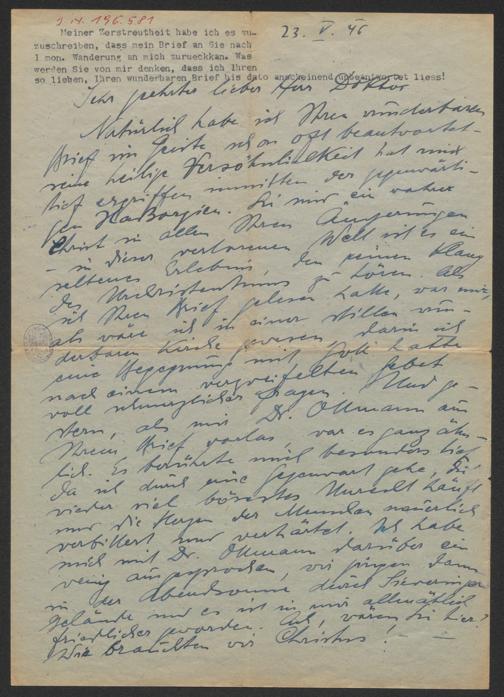 J.N. 196.581
23. V. 46
Meiner Zerstreutheit habe ich es zu-
zuschreiben, dass mein Brief an Sie nach
1 mon. Wanderung an mich zurueckkam. Was
werden Sie von mir denken, dass ich Ihren
so lieben, Ihren wunderbaren Brief bis dato anscheinend unbeantwortet liess!
Sehr geehrter lieber Herr Doktor
Natürlich habe ich Ihren wunderbaren
Brief im Geiste schon oft beantwortet –
seine heilige Versöhnlichkeit hat mich
tief ergriffen inmitten der gegenwärti-
gen Haßorgien. Sie sind ein wahrer
Christ in allen Ihren Äußerungen
– in dieser verlorenen Welt ist es ein
seltenes Erlebnis, den reinen Klang
des Urchristentums zu hören. Als
ich Ihren Brief gelesen hatte, war mir,
als wäre ich in einer stillen wun-
derbaren Kirche gewesen, darin ich
eine Begegnung mit Gott hatte
nach einem verzweifelten Gebet
voll schmerzlicher Fragen. Und ge-
stern, als mir Dr. Ollmann aus
Ihrem Brief vorlas, war es ganz ähn-
lich. Es berührte mich besonders tief,
da ich durch eine Gegenwart gehe, die
wieder viel bösestes Unrecht häuft
und die Herzen der Menschen neuerlich
verbittert und verhärtet. Ich habe
mich mit Dr. Ollmann darüber ein
wenig ausgesprochen, wir gingen dann
in der Abendsonne durchs Sieveringer
Gelände und es ist in mir allmählich
friedlicher geworden. Ach, wären Sie hier!
Wie brauchten wir Christus! –